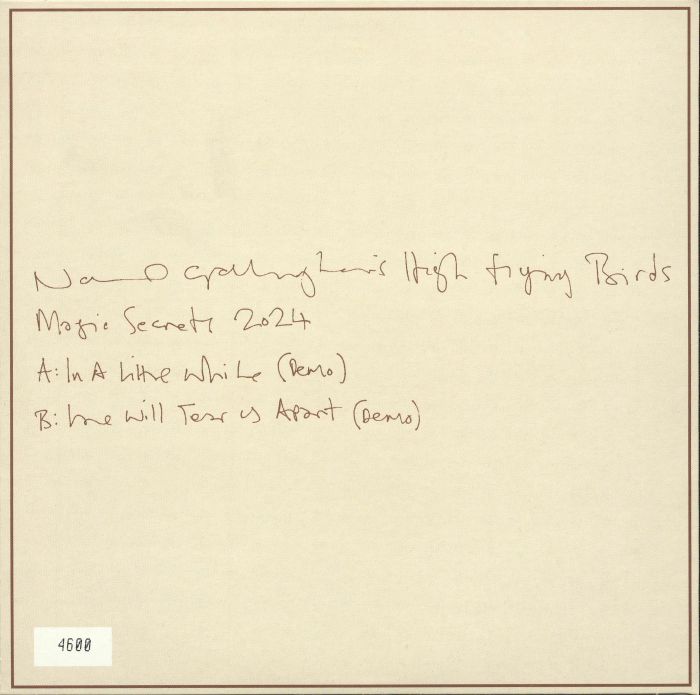 Noel Gallagher's High Flying Birds
Magic Secrets 2024
A: In A Little While (Demo)
B: Love Will Tear Us Apart (Demo)
4600